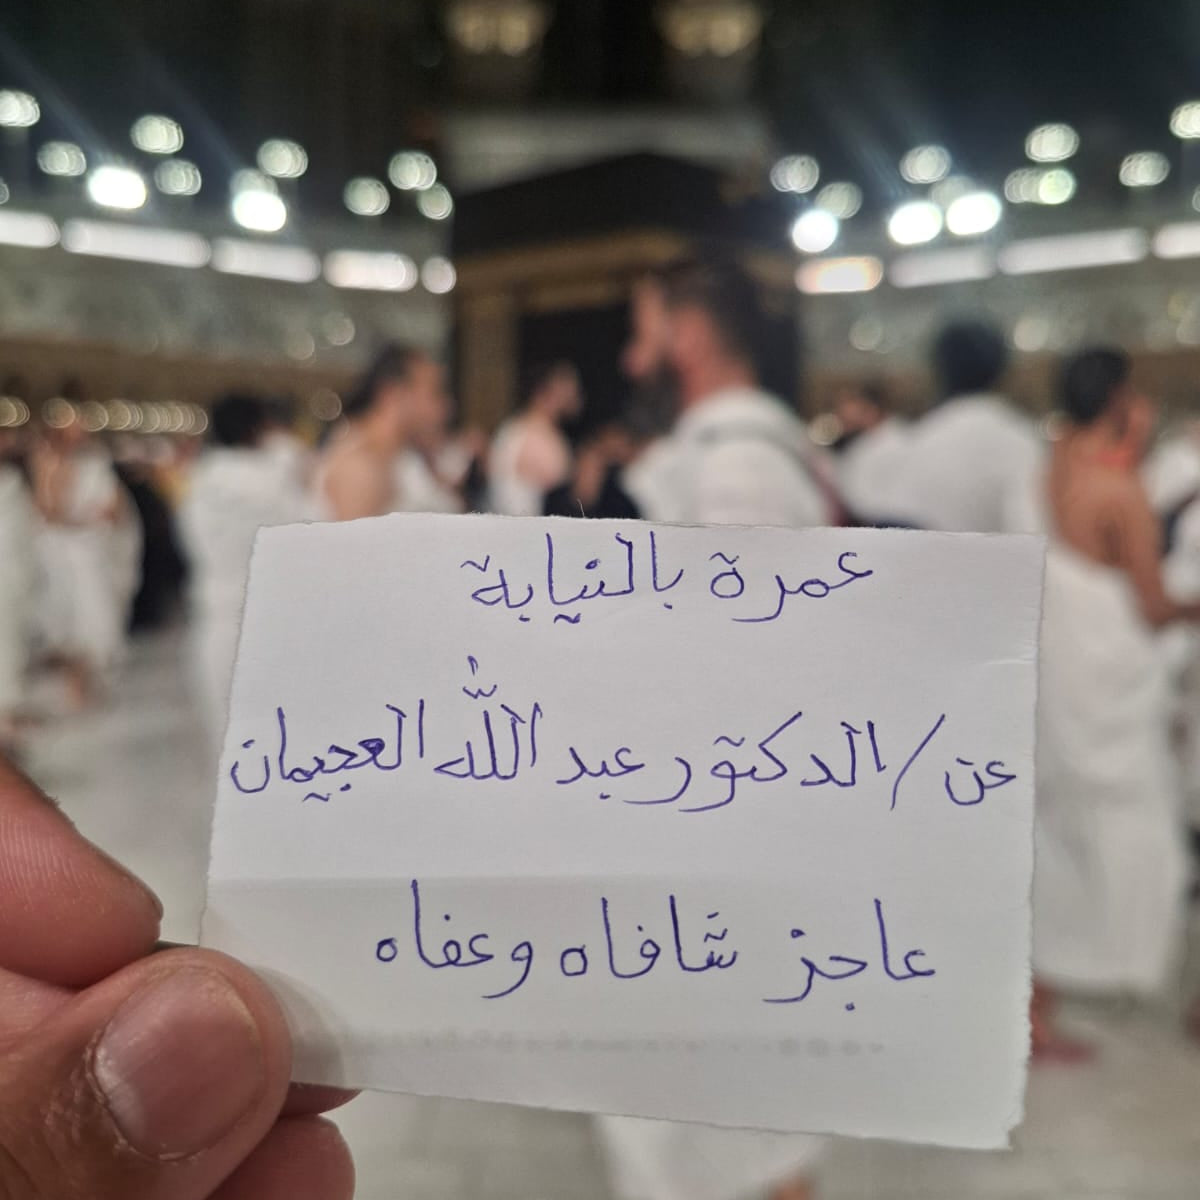 عمرة بالنيابة
عن / الدكتور عبد الله العجيمان
عاجز شافاه وعفاه